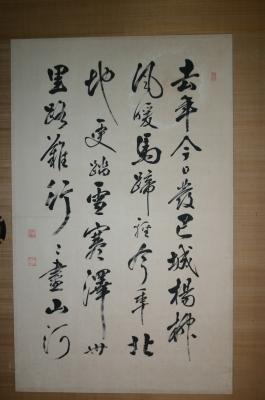 去年今日發巴城楊柳
風暖馬蹄輕今年北
地更踏雪寒澤卅
里路難行々盡山河